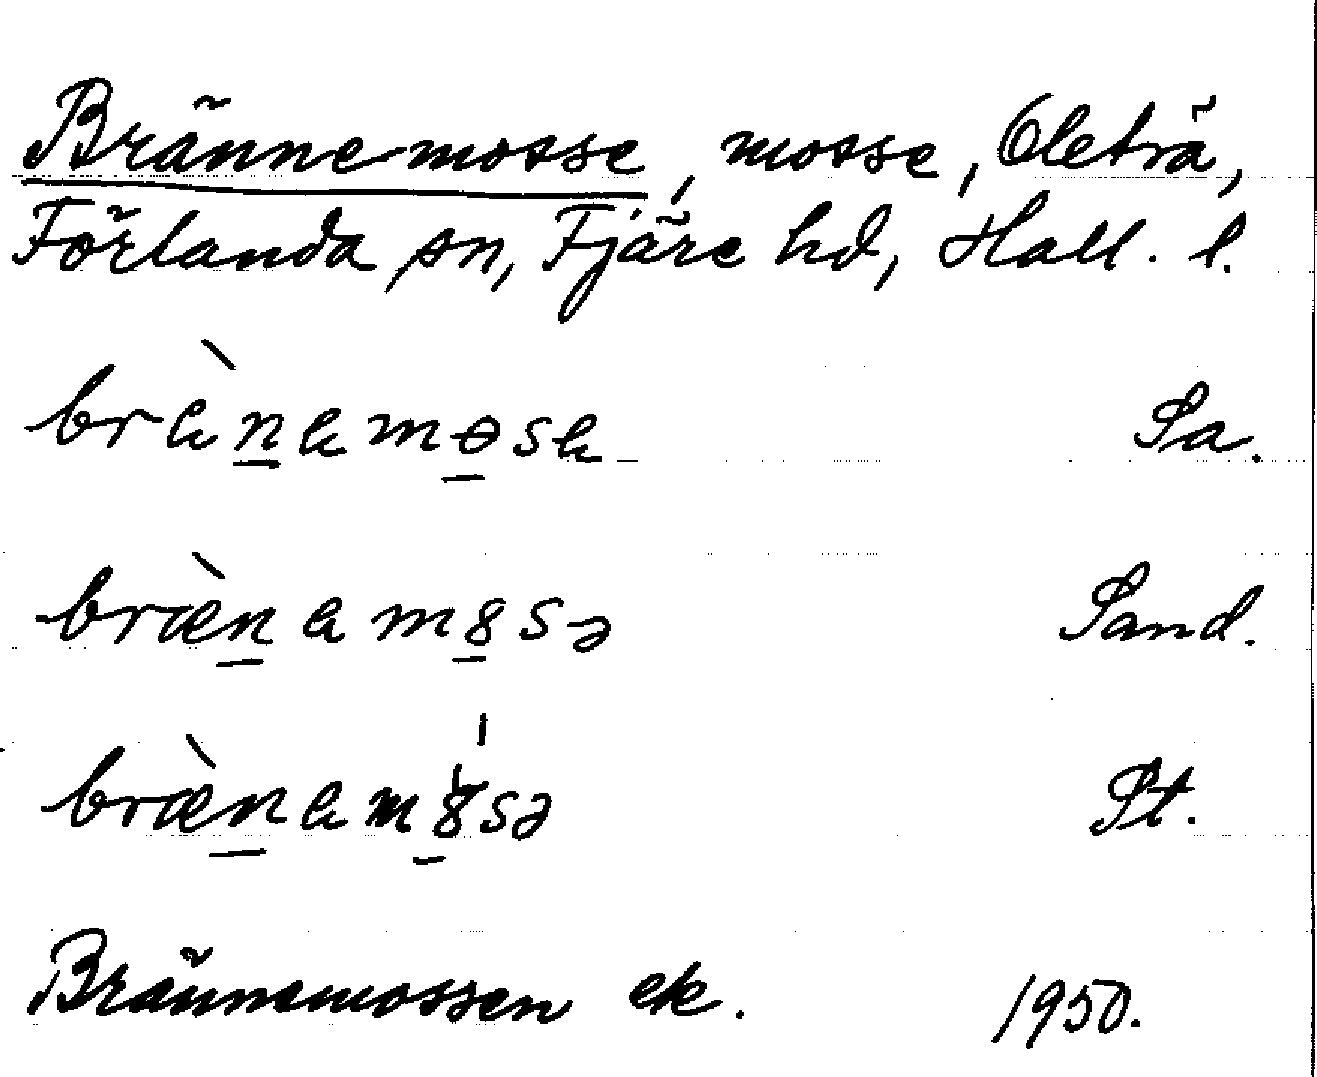 Brännemosse, mosse, Oleträ,
Förlanda sn, Fjäre hd, Hall. l.
Sa.
Sand.
St.
Brännemossen ek. 1950.